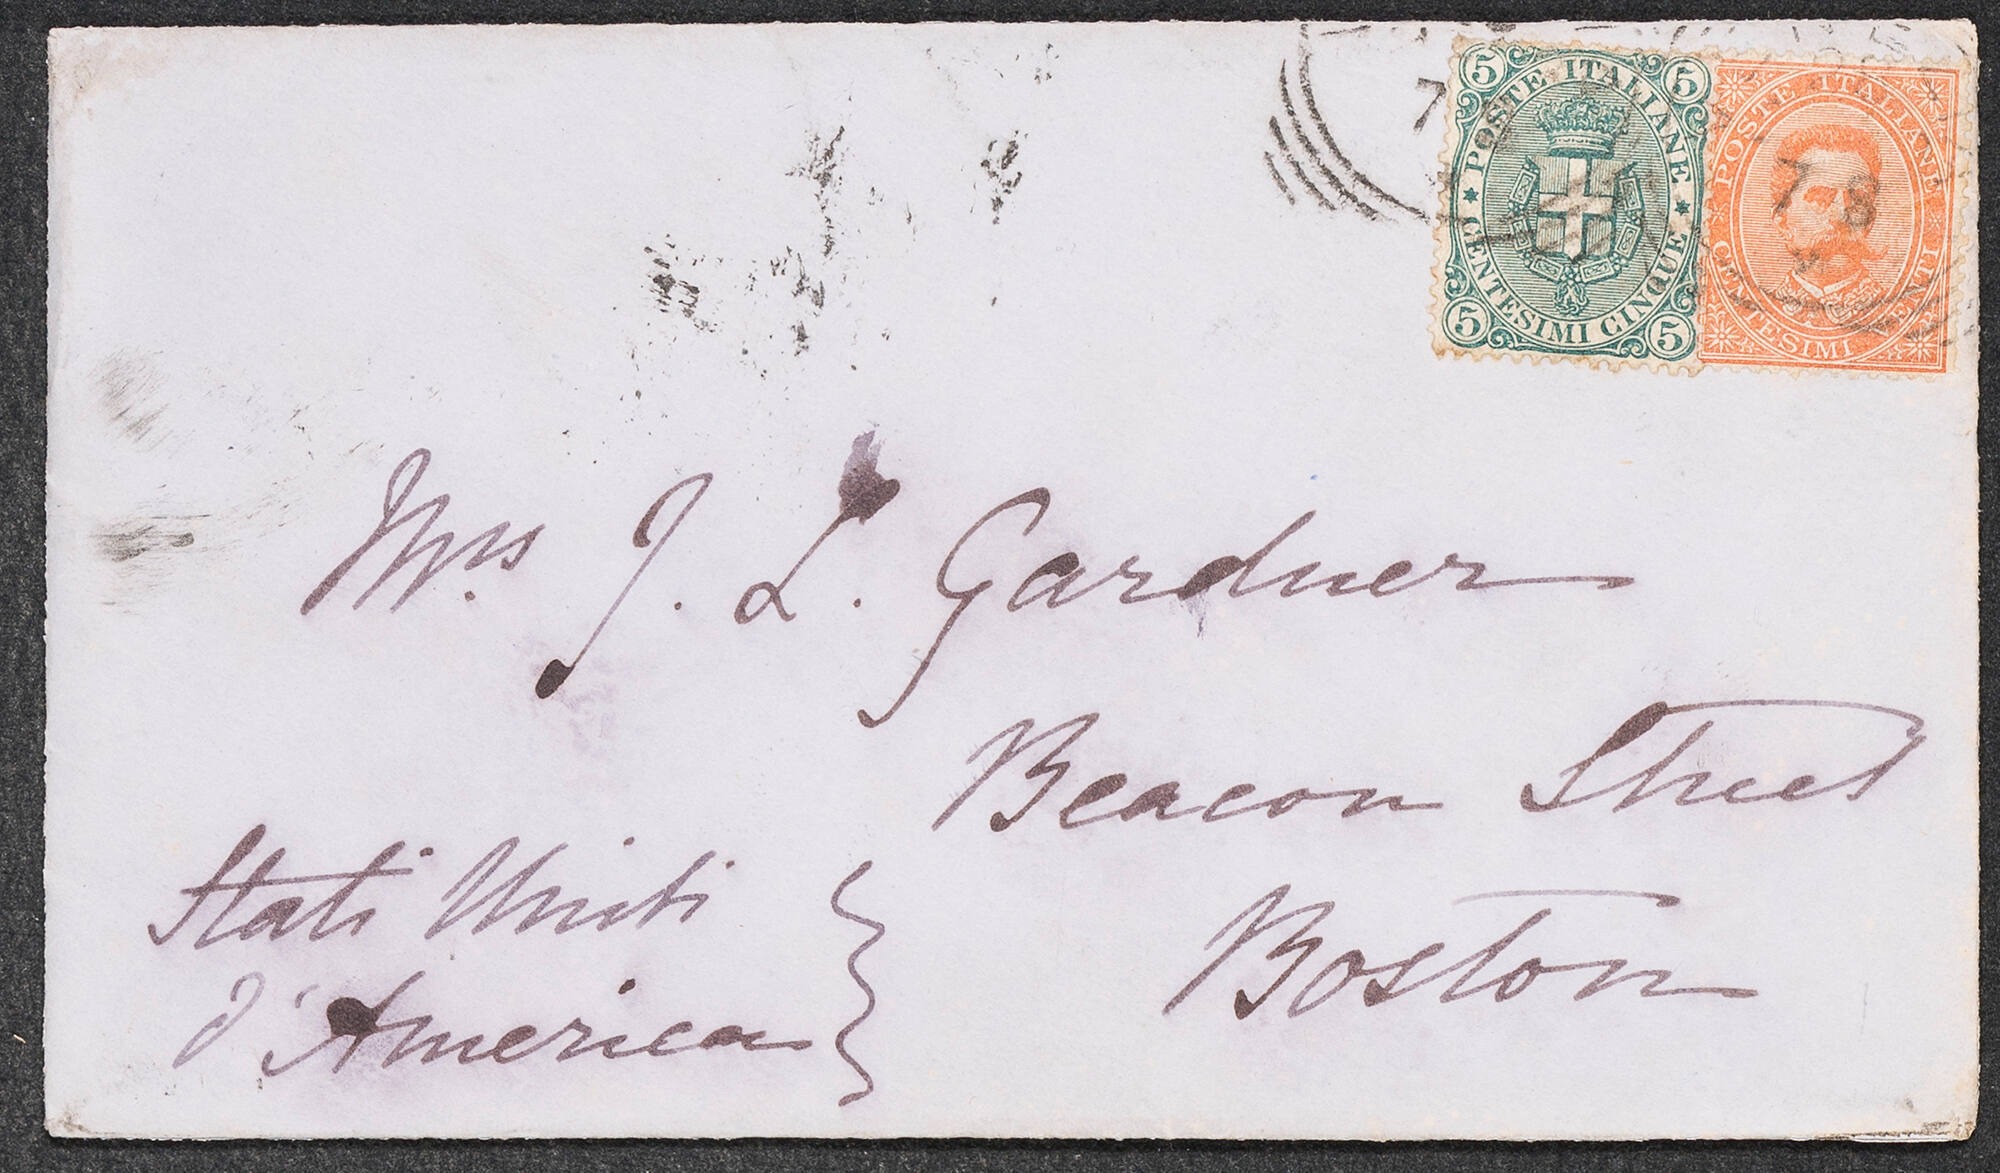 5 POSTE ITALIANE 5
5 CENTESIMI CINQUE 5
POSTE ITALIANE
CENTESIMI VENTI
7
7 8
Mrs. J. L. Gardner
Beacon Street
Boston
Stati Uniti
d'America